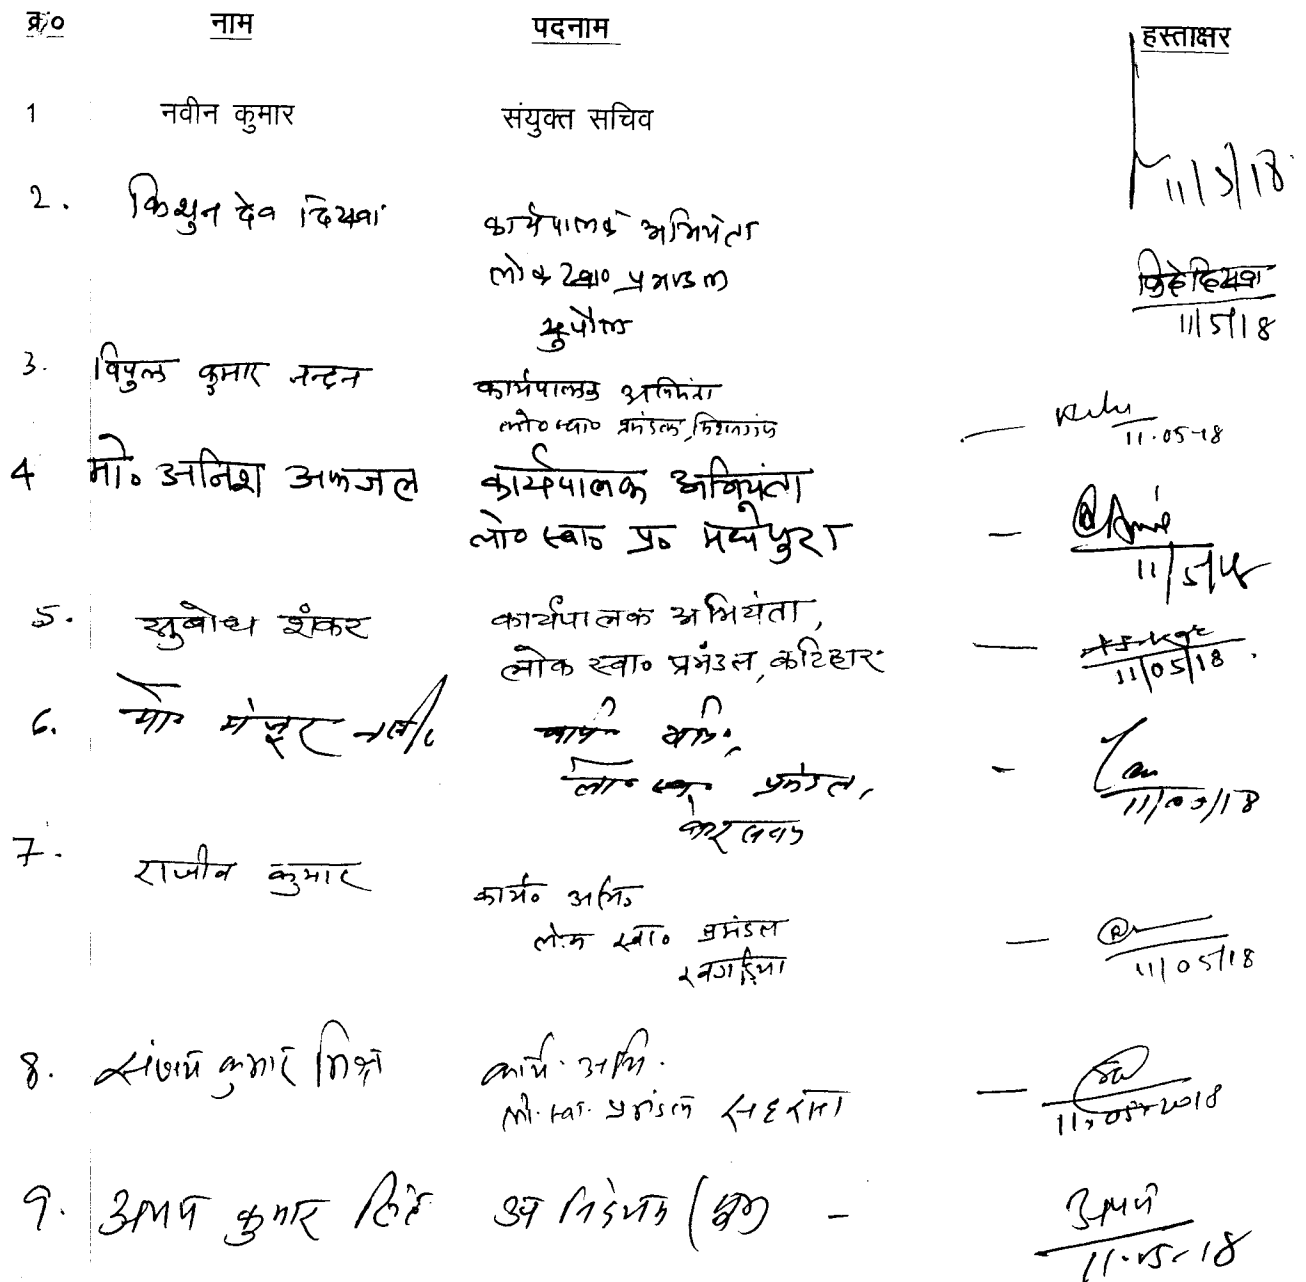 क्र० नाम पदनाम हस्ताक्षर
1 नवीन कुमार संयुक्त सचिव
11/5/18
2. किशुन देव कार्यपालक अभियंता
लोक स्वा० प्रमण्डल
सुपौल
11/5/18
3. विपुल कुमार नन्दन कार्यपालक अभियंता
लो० स्वा० प्रमंडल, किशनगंज
— 11.05.18
4 मो० अनिश अफजल कार्यपालक अभियंता
लो० स्वा० प्र० मधेपुरा —
11/5/18
5. सुबोध शंकर कार्यपालक अभियंता,
लोक स्वा० प्रमंडल, कटिहार —
11/05/18.
6. मो०
लो० स्वा० प्रमंडल, —
11/05/18
7. राजीव कुमार कार्य० अभि०
लोक स्वा० प्रमंडल —
खगड़िया 11/05/18
8. संजय कुमार मिश्र कार्य. अभि.
लो. स्वा. प्रमंडल सहरसा —
11.05.2018
9. अभय कुमार सिंह उप निदेशक –
अभय
11.05.18